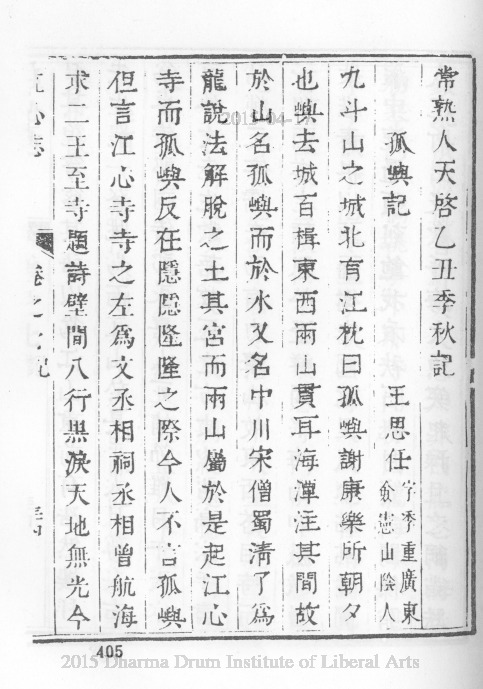 常熟人天啓乙丑季秋記
孤嶼記 王思任字季重廣東僉憲山陰人
九斗山之城北有江枕曰孤嶼謝康樂所朝夕
也嶼去城百楫東西兩山貫耳海潭注其間故
於山名孤嶼而於水又名中川宋僧蜀清了爲
龍說法解脫之土其宮而兩山屬於是起江心
寺而孤嶼反在隱隱隆隆之際今人不言孤嶼
但言江心寺寺之左爲文丞相祠丞相曾航海
求二王至寺題詩壁間八行黑淚天地無光今
江心志 卷之七記
405
2015-04-17
2015 Dharma Drum Institute of Liberal Arts